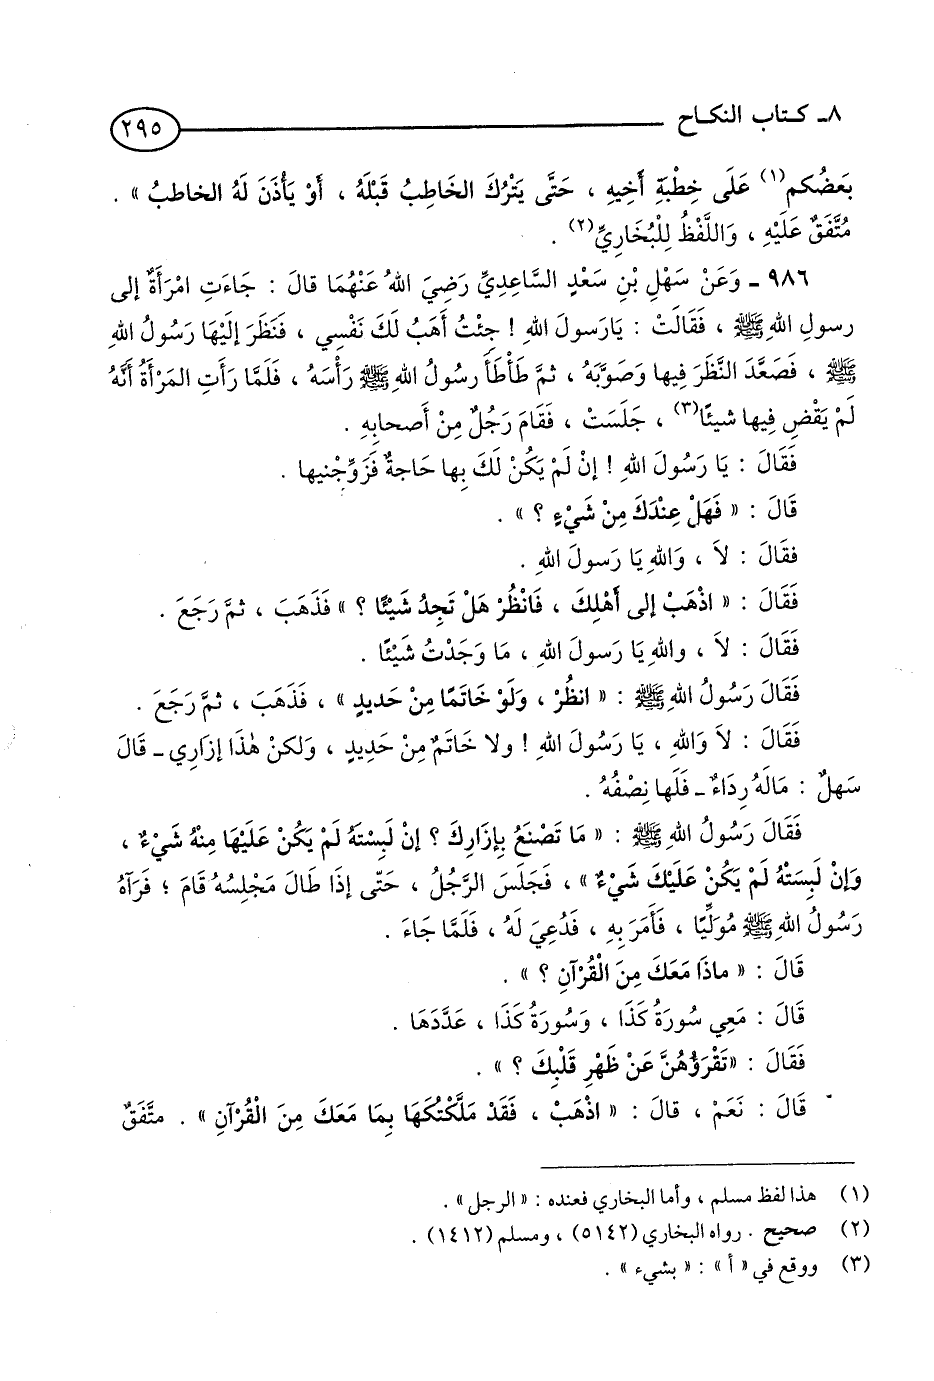 ٨ـ كتاب النكاح ٢٩٥
بَعَضُكم(١) عَلَى خِطْبَةِ أَخِيهِ ، حَتَّى يَتْرُكَ الخَاطِبُ قَبْلَهُ ، أَوْ يَأْذَنَ لَهُ الخاطبُ » .
مُتَّفَقٌ عَلَيْهِ ، وَاللَّفْظُ لِلْبُخَارِيِّ(٢) .
٩٨٦ ـ وَعَنْ سَهْلِ بْنِ سَعْدٍ السَّاعِدِيِّ رَضِيَ اللهُ عَنْهُمَا قالَ : جَاءَتِ امْرَأَةٌ إلى
رسولِ اللهِ ﷺ ، فَقَالَتْ : يَارَسولَ اللهِ ! جِئْتُ أَهَبُ لَكَ نَفْسِي ، فَنَظَرَ إِلَيْهَا رَسُولُ اللهِ
ﷺ ، فَصَعَّدَ النَّظَرَ فِيها وَصَوَّبَهُ ، ثمَّ طَأْطَأَ رسُولُ اللهِ ﷺ رَأْسَهُ ، فَلَمَّا رَأَتِ المَرْأَةُ أَنَّهُ
لَمْ يَقْضِ فِيها شيئًا(٣) ، جَلَسَتْ ، فَقَامَ رَجُلٌ مِنْ أَصحابِهِ .
فَقَالَ : يَا رَسُولَ اللهِ ! إنْ لَمْ يَكُنْ لَكَ بِها حَاجةٌ فَزَوِّجْنِيها .
قَالَ : « فَهَلْ عِنْدَكَ مِنْ شَيْءٍ ؟ » .
فقَالَ : لاَ ، وَاللهِ يَا رَسولَ اللهِ .
فَقَالَ : « اذْهَبْ إلى أَهْلِكَ ، فَانْظُرْ هَلْ تَجِدُ شَيْئًا ؟ » فَذَهَبَ ، ثمَّ رَجَعَ .
فَقَالَ : لاَ ، واللهِ يَا رَسولَ اللهِ ، مَا وَجَدْتُ شَيْئًا .
فَقَالَ رَسُولُ اللهِ ﷺ : « انظُرْ ، وَلَوْ خَاتَمًا مِنْ حَديدٍ » ، فَذَهَبَ ، ثمَّ رَجَعَ .
فَقَالَ : لاَ وَاللهِ ، يَا رَسُولَ اللهِ ! ولا خَاتَمٌ مِنْ حَدِيدٍ ، وَلكنْ هٰذَا إزَارِي ـ قَالَ
سَهلٌ : مَالَهُ رِدَاءٌ ـ فَلَها نِصْفُهُ .
فَقَالَ رَسُولُ اللهِ ﷺ : « مَا تَصْنَعُ بِإزَارِكَ ؟ إنْ لَبِسْتَهُ لَمْ يَكُنْ عَلَيْهَا مِنْهُ شَيْءٌ ،
وَإنْ لَبِسَتْهُ لَمْ يَكُنْ عَلَيْكَ شَيْءٌ » ، فَجَلَسَ الرَّجُلُ ، حَتَّى إذَا طَالَ مَجْلِسُهُ قَامَ ؛ فَرَآهُ
رَسُولُ اللهِ ﷺ مُوَلِّيًا ، فَأَمَرَ بِهِ ، فَدُعِيَ لَهُ ، فَلَمَّا جَاءَ .
قَالَ : « ماذَا مَعَكَ مِنَ الْقُرْآنِ ؟ » .
قَالَ : مَعِي سُورَةُ كَذَا ، وَسُورَةُ كَذَا ، عَدَّدَهَا .
فَقَالَ : «تَقْرَؤُهُنَّ عَنْ ظَهْرِ قَلْبِكَ ؟ » .
قَالَ : نَعَمْ ، قالَ : « اذْهَبْ ، فَقَدْ مَلَّكْتُكَهَا بِمَا مَعَكَ مِنَ الْقُرْآنِ » . متَّفَقٌ
(١) هذا لفظ مسلم ، وأما البخاري فعنده : « الرجل » .
(٢) صحيح . رواه البخاري (٥١٤٢) ، ومسلم (١٤١٢) .
(٣) ووقع في « أ » : « بشيء » .